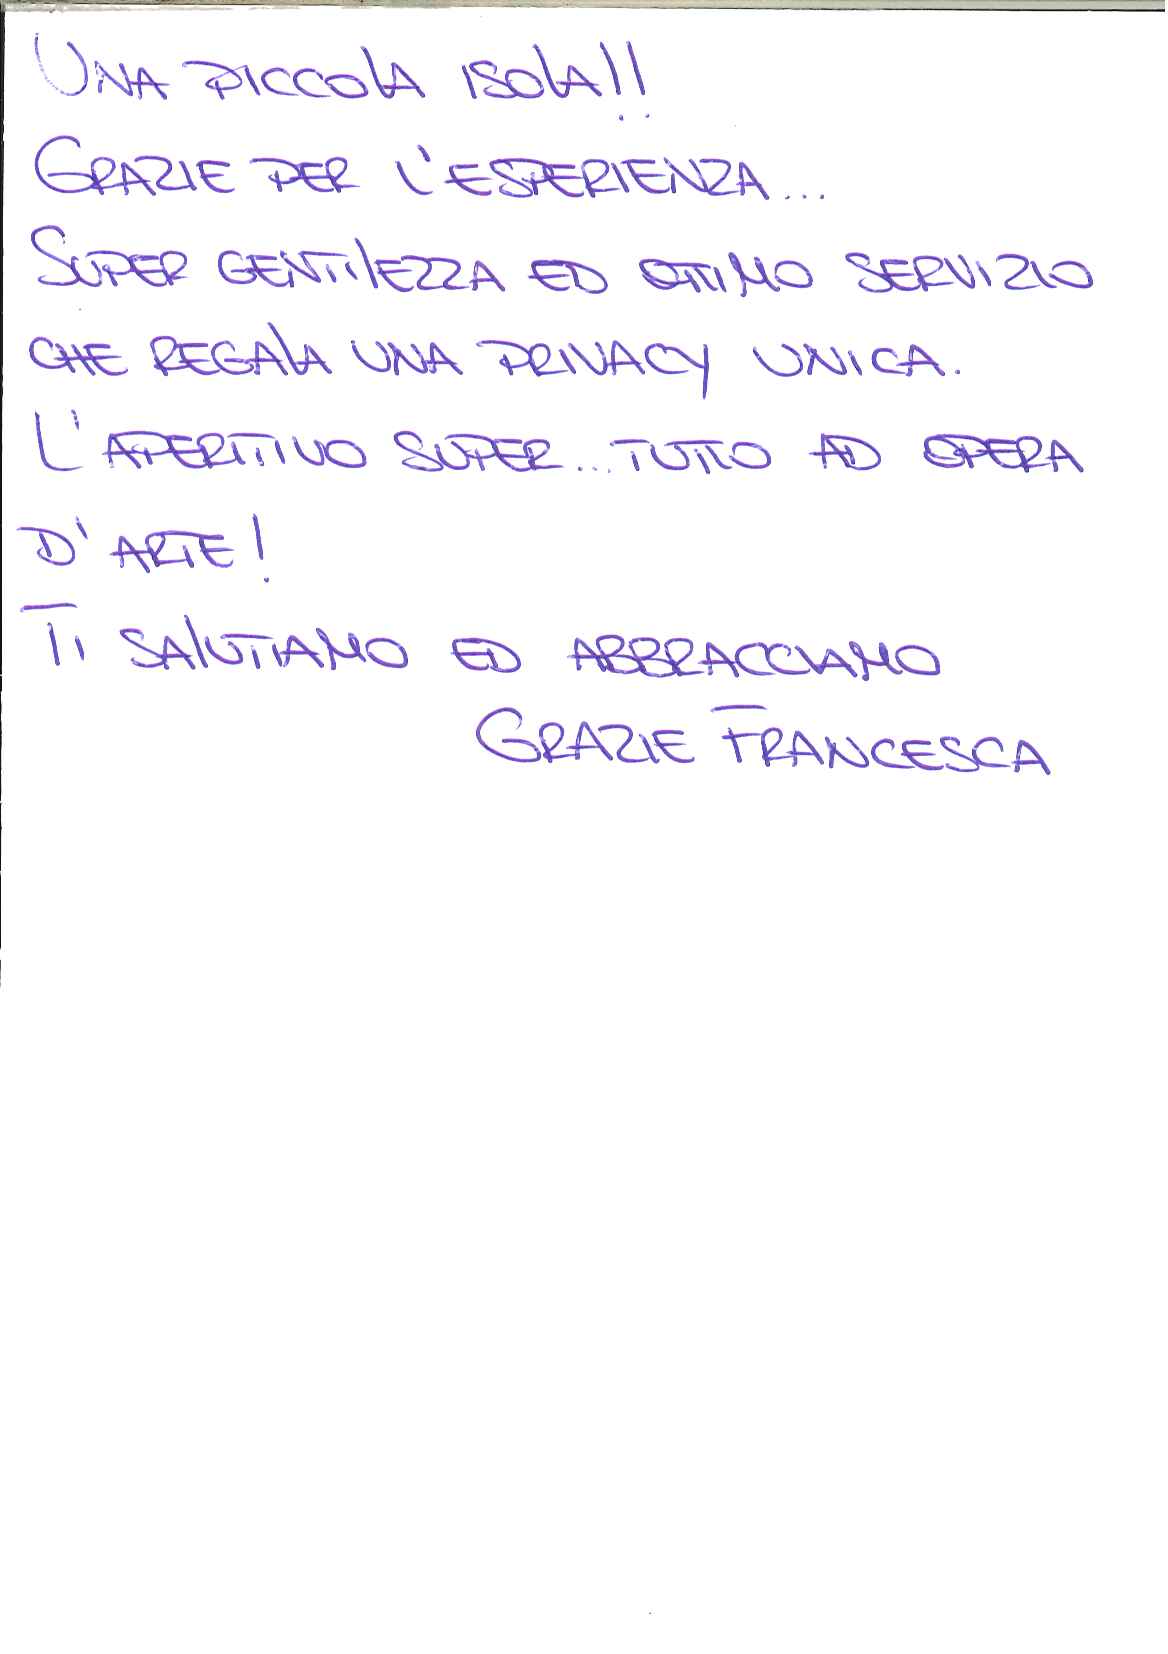 UNA PICCOLA ISOLA!!
GRAZIE PER L'ESPERIENZA...
SUPER GENTILEZZA ED OTTIMO SERVIZIO
CHE REGALA UNA PRIVACY UNICA.
L'APERITIVO SUPER...TUTTO AD OPERA
D'ARTE!
TI SALUTIAMO ED ABBRACCIAMO
GRAZIE FRANCESCA